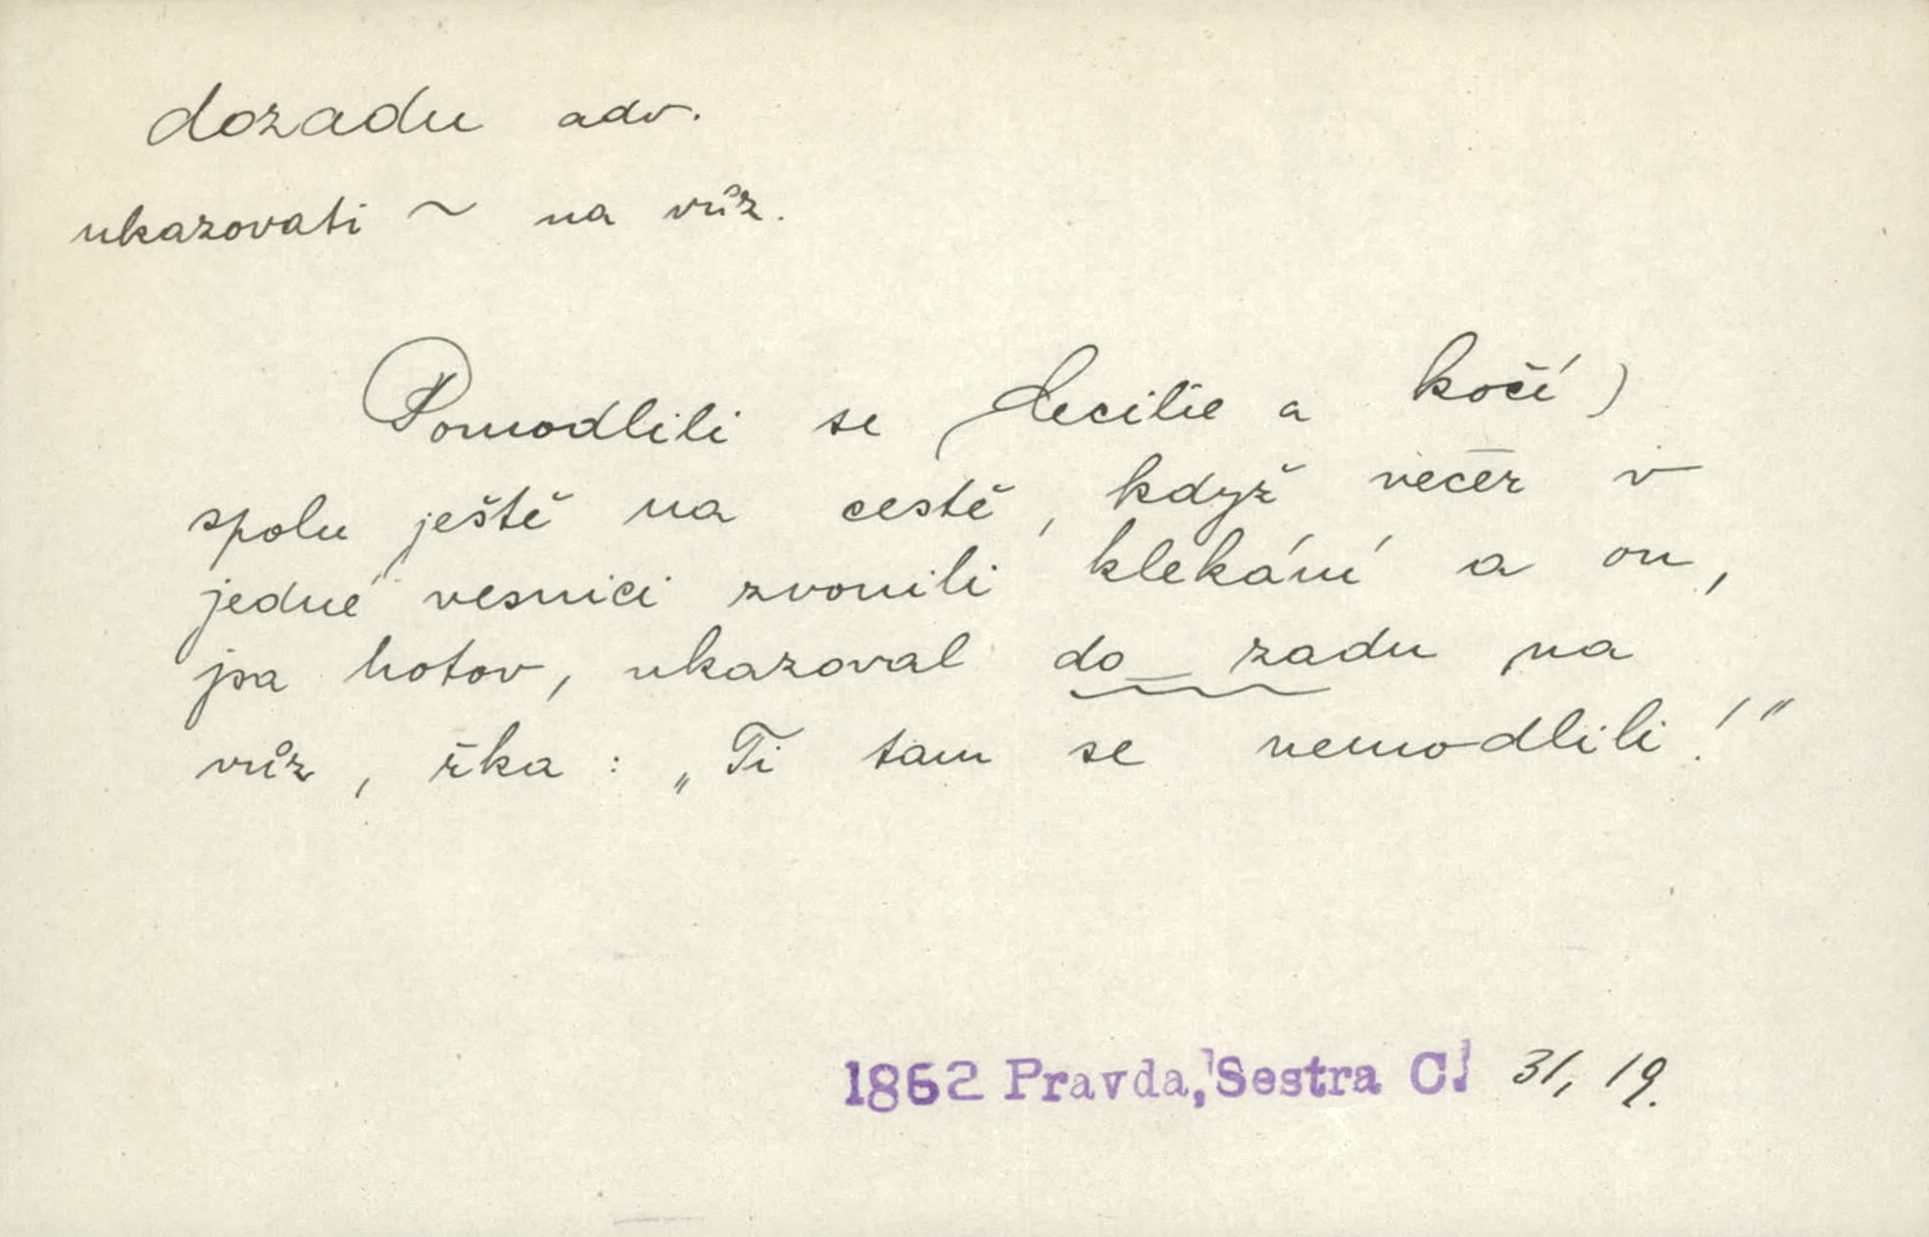 dozadu adv.
ukazovati ~ na vůz.
Pomodlili se (Cecilie a kočí)
spolu ještě na cestě, když večer v
jedné vesnici zvonili klekání a on,
jsa hotov, ukazoval do zadu na
vůz, řka: „Ti tam se nemodlili!"
1862 Pravda, Sestra C. 31, 19.